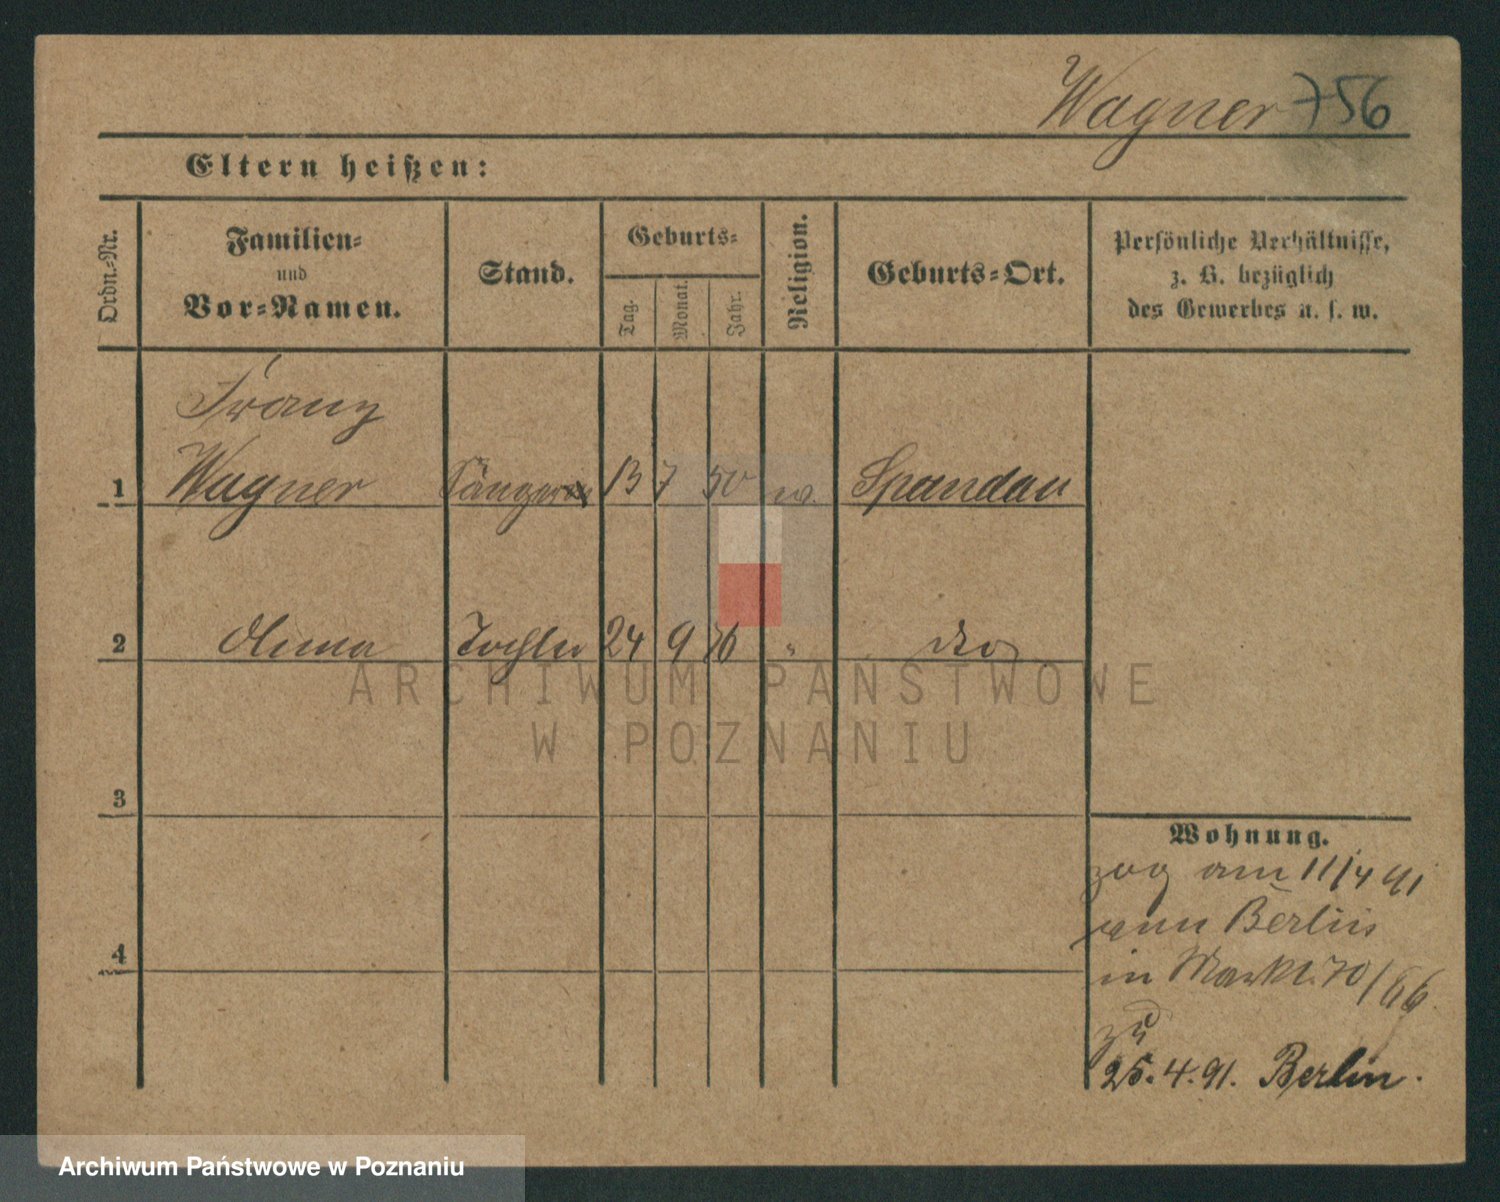 Wagner 756
Eltern heißen:
Ordn.-Nr.
Familien-
und
Vor-Namen.
Stand.
Geburts-
Tag.
Monat.
Jahr.
Religion.
Geburts-Ort.
Persönliche Verhältnisse,
z. B. bezüglich
des Gewerbes u. s. w.
Franz
1 Wagner Sänger 13 7 50 Spandau
2 Tochter 24 9 76 " dto
3
4
Wohnung.
zog am 11/4 91
von Berlin
in Markt. 70/66
zu
25.4.91. Berlin.
ARCHIWUM PAŃSTWOWE
W POZNANIU
Archiwum Państwowe w Poznaniu